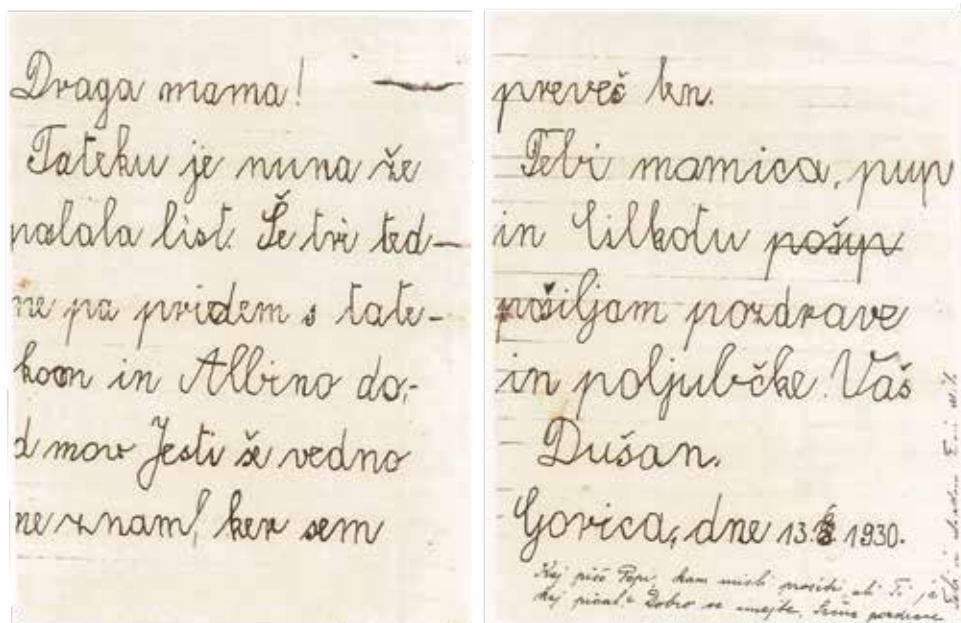 Draga mama!
Tateku je nuna že
palala list. Še tri ted-
ne pa pridem s tate-
kom in Albino do-
d mov Jesti še vedno
ne znam, ker sem
preveč len.
Tebi mamica, pup
in Cilkotu pošyp
pošiljam pozdrave
in poljubčke. Vaš
Dušan.
Gorica, dne 13. 1930.
Kaj piše Pepi, kam misli prositi, ali Ti je
kaj pisal? Dobro se imejte, pozdrave